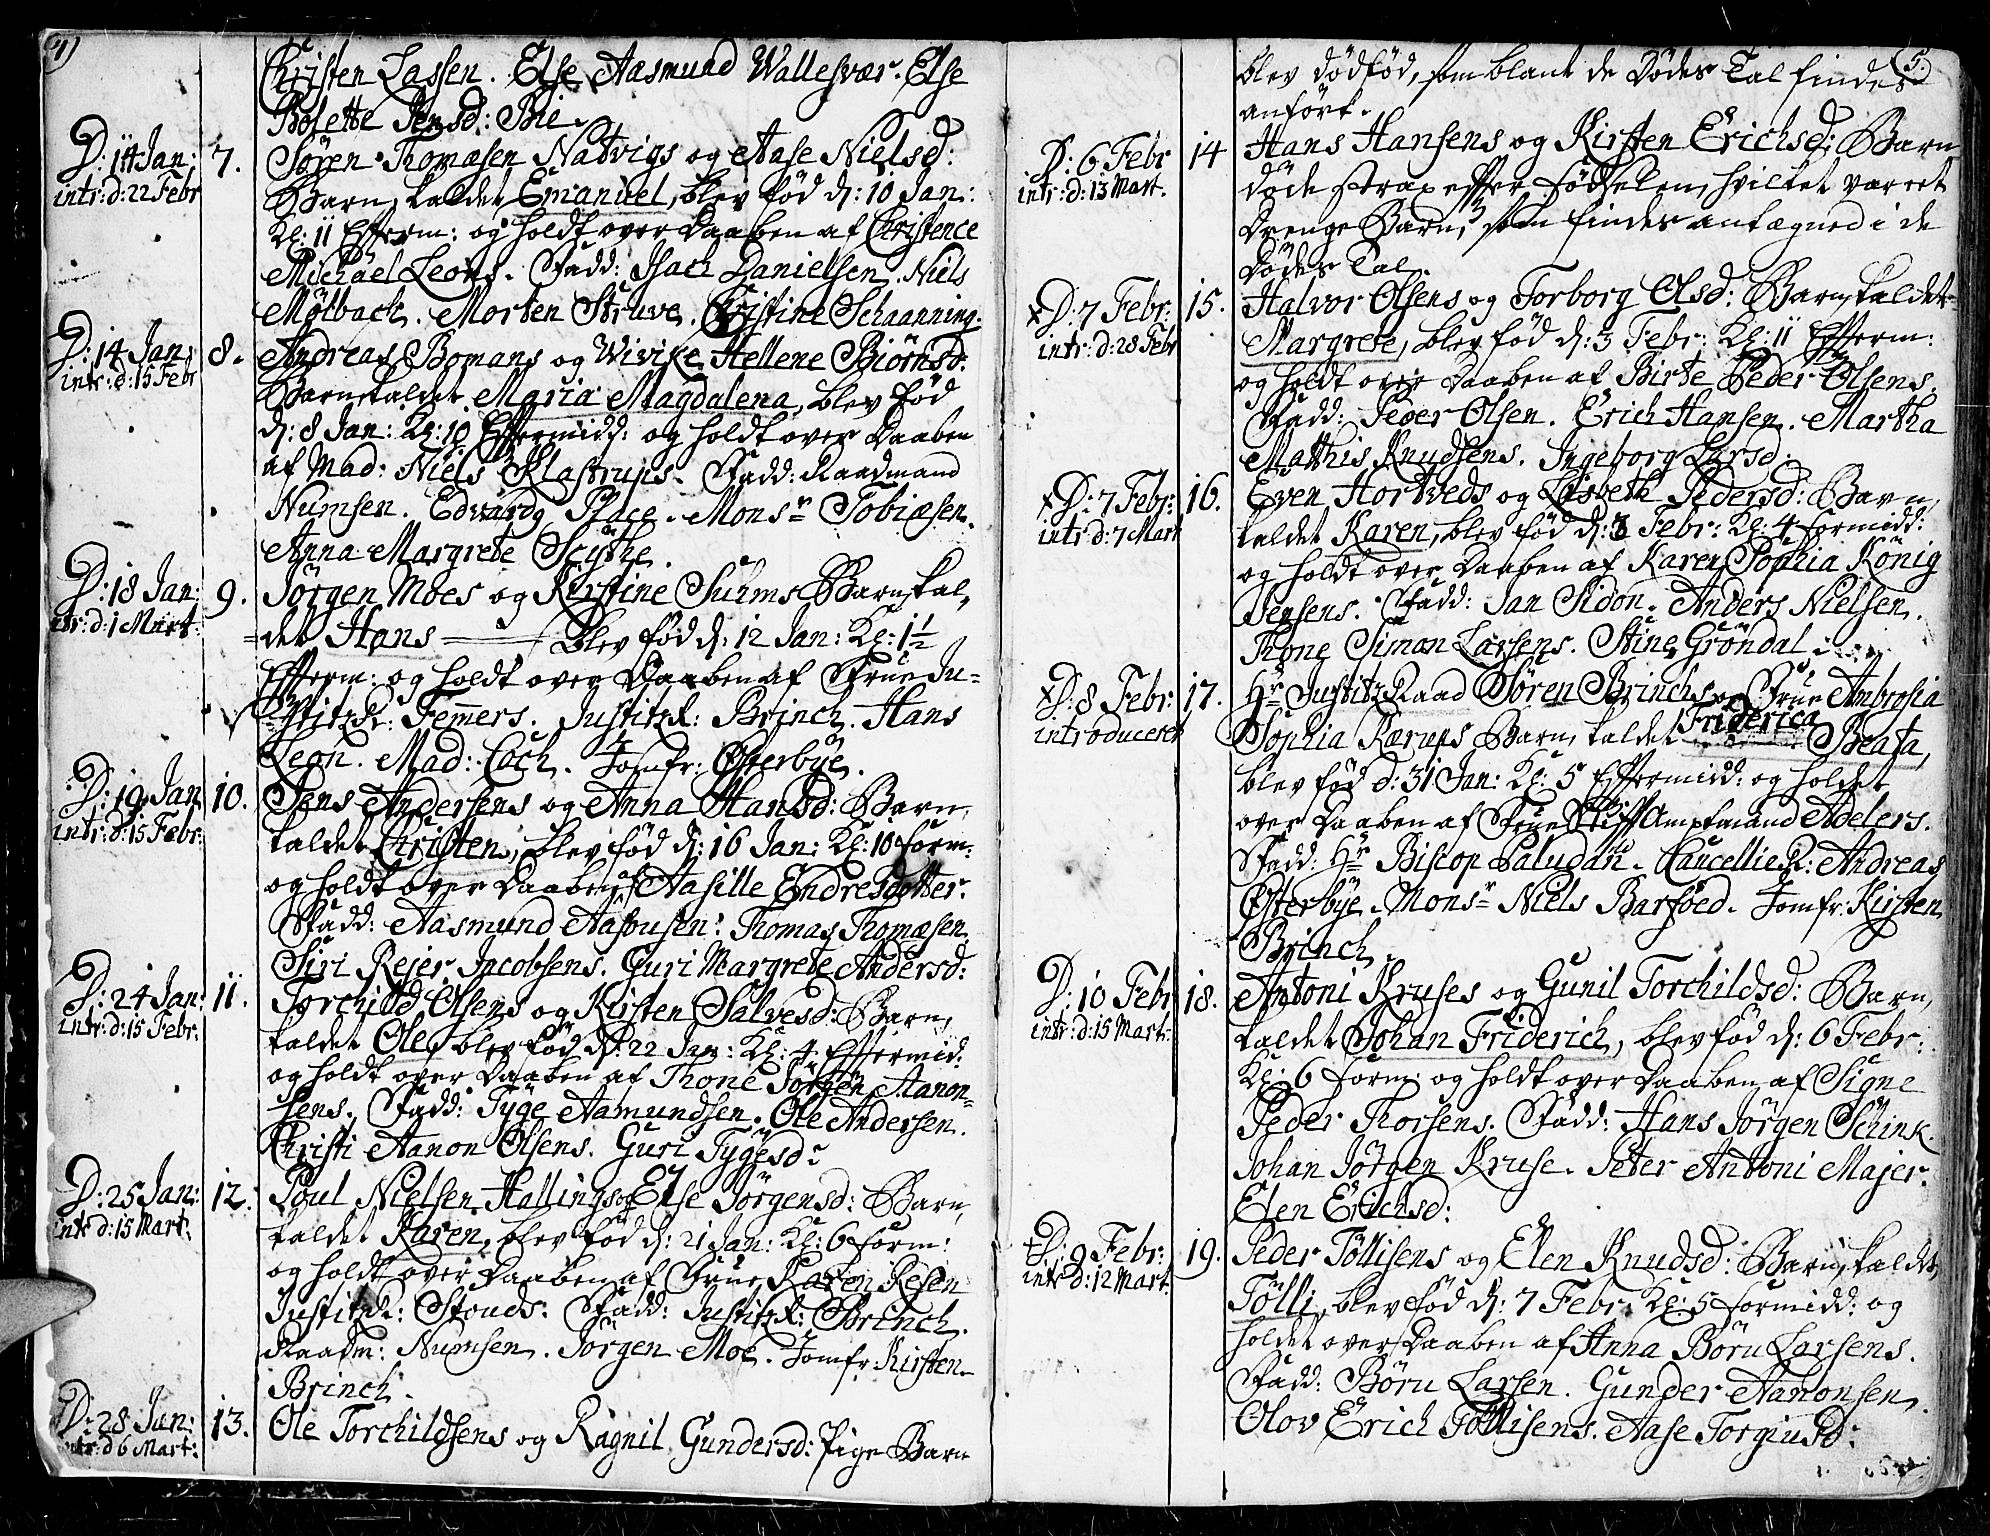 4)
Christen Lassen. Else Aasmund Wallesvær. Else
Bolette Jensd: Bie.
D: 14 Jan: 7. Søren Thomæsen Natvigs og Aase Nielsd:
intr: d: 22 Febr Barn, kaldet Emanuel, blev fød d: 10 Jan:
Kl: 11 Efferm: og holdt over Daaben af Christence
Michael Leons. Fadd: Isach Danielsen. Niels
Mølback. Morten Struve. Cristine Schaanning.
D: 14 Jan: 8. Andreas Bomans og Wivike Hellene Biørnsd:
intr: d: 15 Febr Barn kaldet Maria Magdalena, blev fød
d: 8 Jan: Kl: 10 Effermidd: og holdt over Daaben
af Mad: Niels Klastrups. Fadd: Raadmand
Numsen. Edvardg Place. Monsr Tobiæsen.
Anna Margrete Scythe.
D: 18 Jan: 9. Jørgen Moes og Kirstine Suhms Barn, kal-
intr: d: 1 Mart: det Hans blev fød d: 12 Jan: Kl: 1½
Efferm: og holdt over Daaben af Frue Ju-
stitzR: Femers. JustitzR: Brinch. Hans
Leon. Mad: Coch. Jomfr: Østerbye.
D: 19 Jan 10. Jens Andersens og Anna Hansd: Barn,
intr: d: 15 Febr: kaldet Christen, blev fød d: 16 Jan: Kl: 10 form:
og holdt over Daaben af Aasille Endresdotter.
Fadd: Aasmund Aasousen: Thomas Thomæsen.
Siri Rejer Jacobsens. Guri Margrete Andersd:
D: 24 Jan: 11. Torchild Olsens og Kirsten Salvesd: Barn,
intr: d: 15 Febr: kaldet Ole, blev fød d: 22 Jan: Kl: 4 Effermid:
og holdt over Daaben af Thone Jørgen Aanon-
sens. Fadd: Tyge Aamundsen. Ole Andersen.
Christi Aanon Olsens. Guri Tygesd:
D: 25 Jan: 12. Poul Nielsen Hallings og Else Jørgensd: Barn,
intr d: 15 Mart: kaldet Karen, blev fød d: 21 Jan: Kl: 6 form:
og holdt over Daaben af Frue Karen Resen
JustitzR: Stouds: Fadd: JustitzR: Brinch.
Raadm: Numsen. Jørgen Moe. Jomfr Kirsten
Brinch.
D: 28 Jan: 13. Ole Torchildsens og Ragnil Gundersd: Pige Barn
intr: d 6 Mart:
5.
blev dødfød, som blant de Dødes Tal findes
anført.
D: 6 Febr 14 Hans Hansens og Kirsten Erichsd: Barn
intr: d: 13 Mart. døde strax effter fødselen, hvilket var et
Drenge Barn, som findes antægned i de
Dødes Tal.
D: 7 Febr: 15. Halvor Olsens og Torborg Olsd: Barn, kaldet
intr: d: 28 Febr Margrete, blev fød d: 3 Febr: Kl: 11 Efferm:
og holdt over Daaben af Birte Peder Olsens.
Fadd: Peder Olsen. Erich Hansen. Martha
Mathis Knudsens. Ingeborg Larsd:
D: 7 Febr: 16. Even Hortveds og Lisbeth Pedersd: Barn,
intr d: 7 Mart kaldet Karen, blev fød d: 3 Febr: Kl: 4 formidd:
og holdt over Daaben af Karen Sophia König
Jensens. Fadd: Jan Sidon. Anders Nielsen.
Thone Simon Larsens. Stine Grøndal
D: 8 Febr: 17. Hr JustitzRaad Søren Brinchs og Frue Ambrosia
introduceret Sophia Kærups Barn, kaldet Friderica Beata,
blev fød d: 31 Jan: Kl: 5 Effermidd: og holdet
over Daaben af Frue Stiff Amptmand Adelers.
Fadd: Hr Biscop Paludan. CancellieR: Andreas
Østerbye. Monsr Niels Barfoed. Jomfr: Kirsten
Brinch.
D: 10 Febr 18. Antoni Kruses og Gunil Torchildsd: Barn,
intr: d: 15 Mart: kaldet Johan Friderich, blev fød d: 6 Febr:
Kl: 6 form: og holdt over Daaben af Signe
Peder Thorsens. Fadd: Hans Jørgen Schink.
Johan Jørgen Kruse. Peter Antoni Majer.
Elen Erichsd:
D: 9 Febr: 19. Peder Tøllisens og Elen Knudsd: Barn, kaldet
intr d: 12 Mart. Tølli, blev fød d: 7 Febr: Kl: 5 formidd: og
holdet over Daaben af Anna Børu Larsens.
Fadd: Børu Larsen. Gunder Aanonsen.
Olov Erich Tøllisens. Aase Torgiusd: